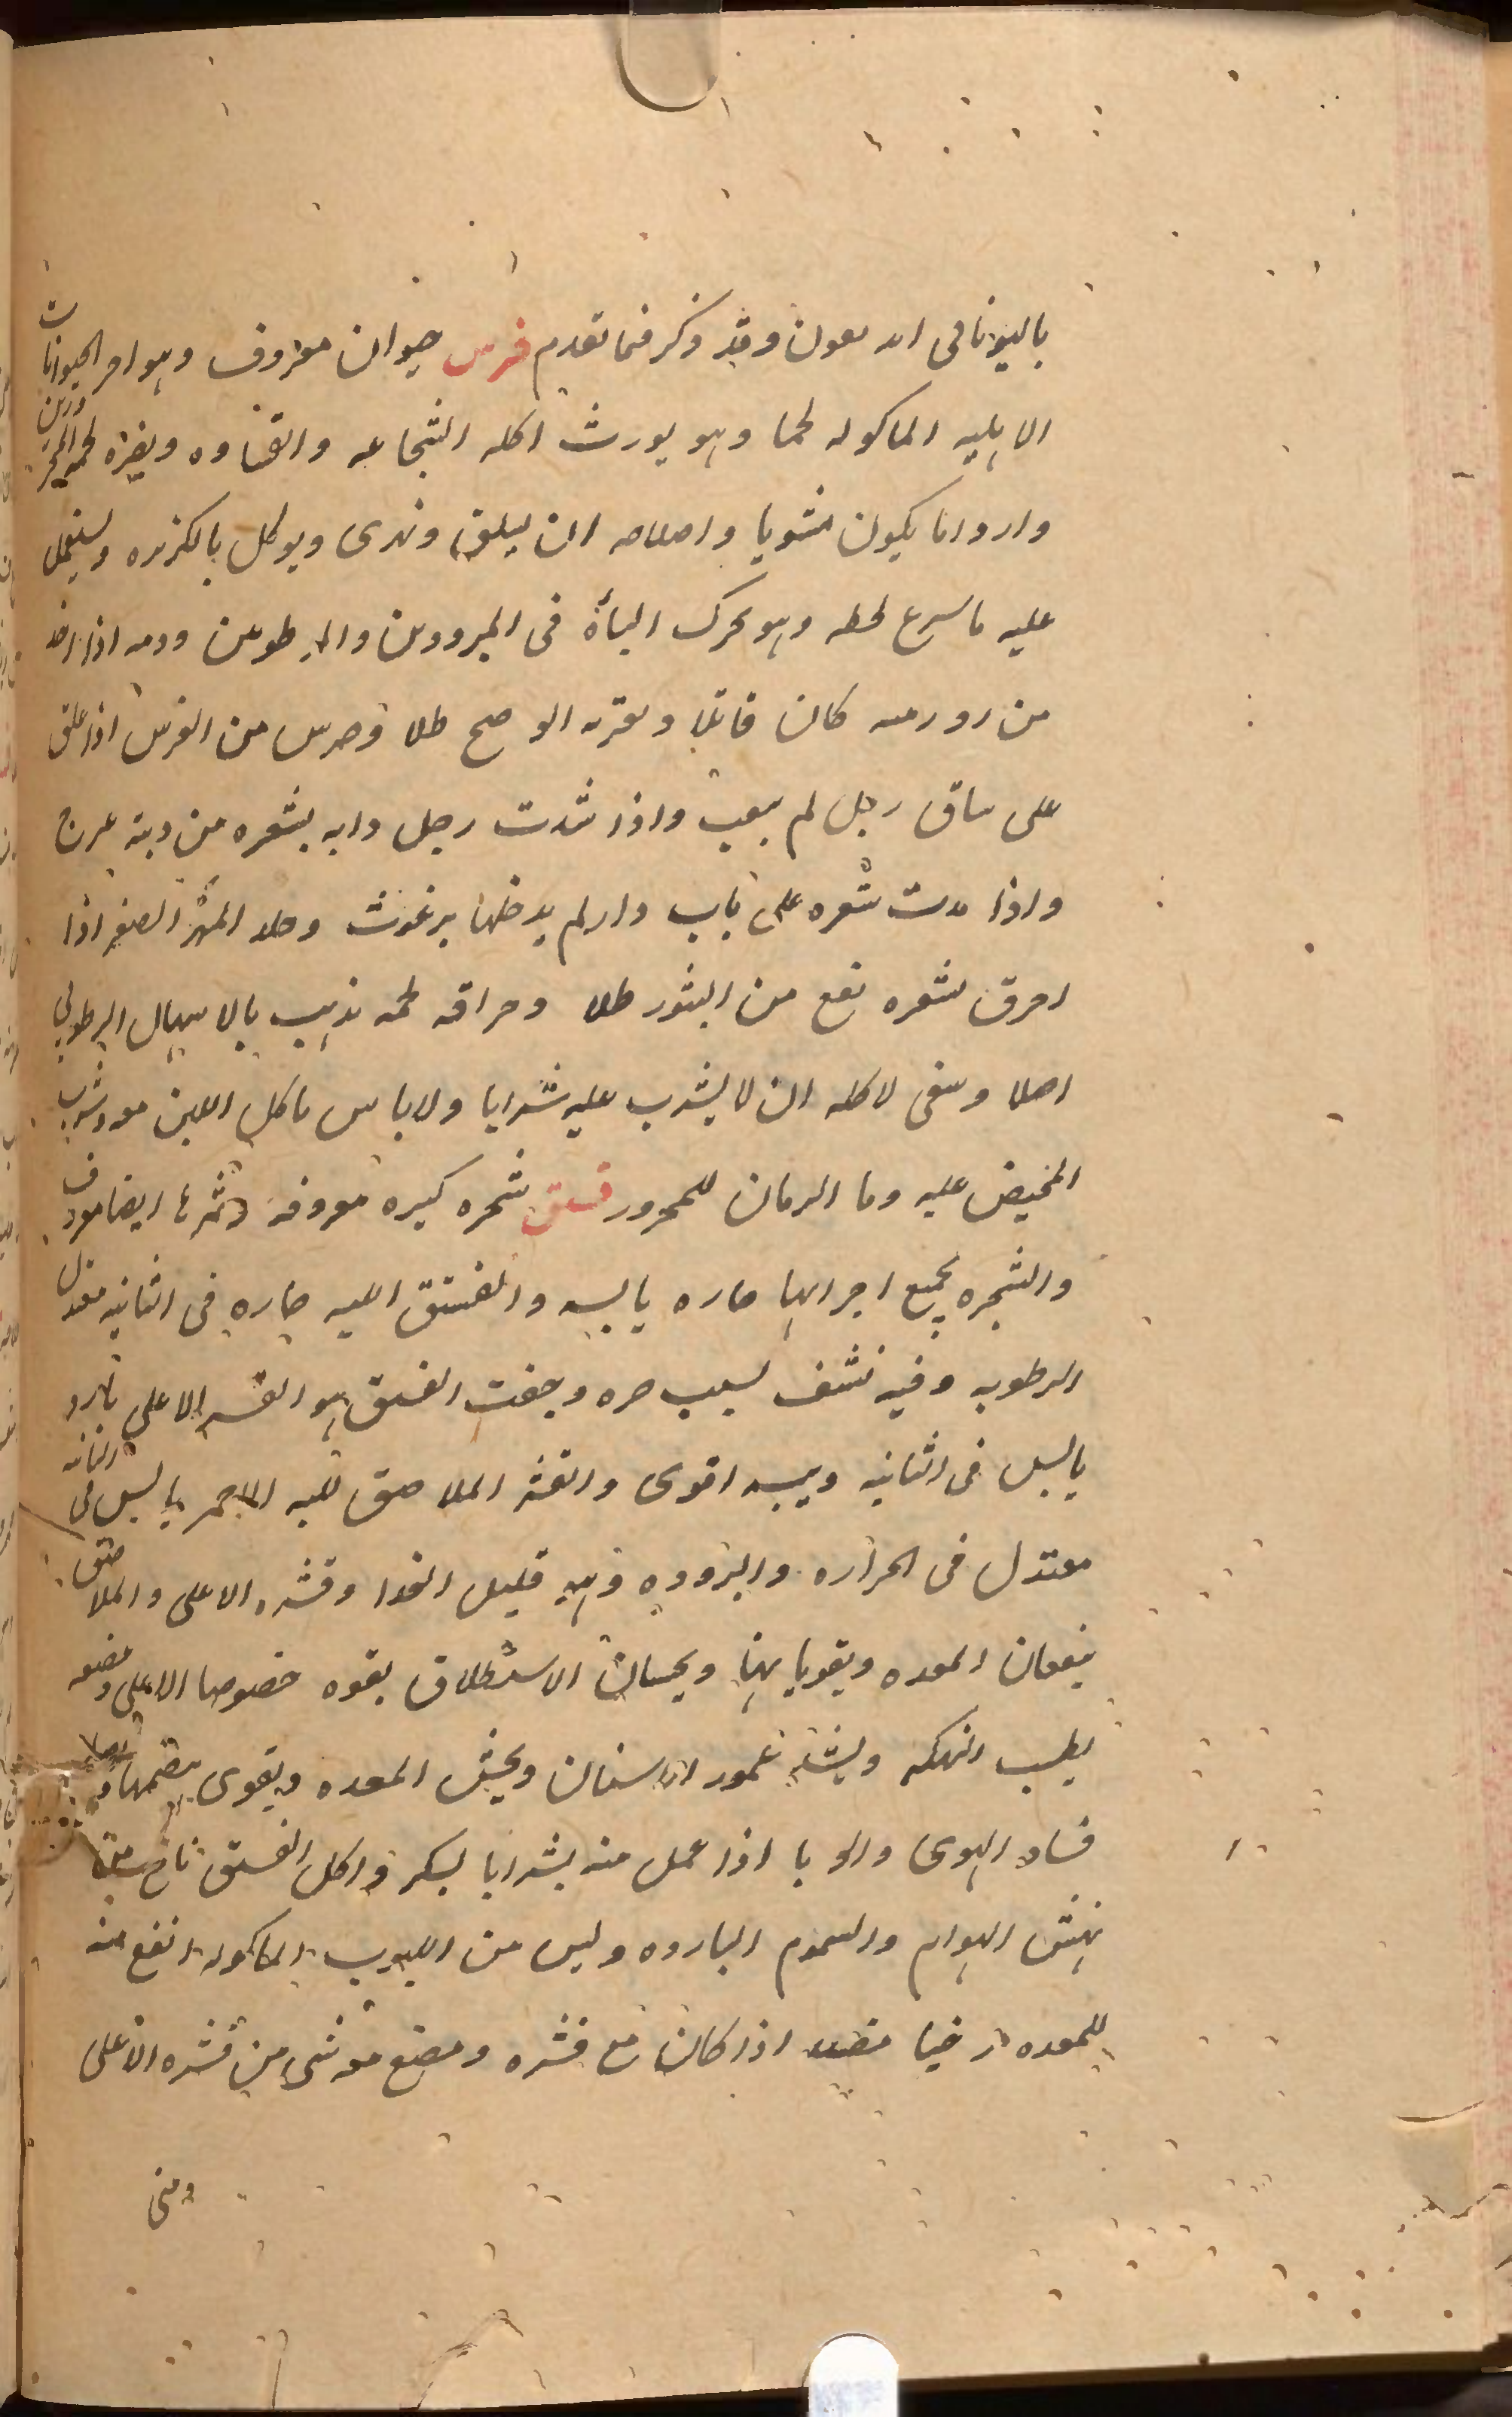 باليونانى اسد معون وقد ذكر فيما تقدم فرس حيوان معروف وهو احر الحيوانات
الاهليه الماكوله لحما وهو يورث اكله الشجاعه والقساوه ويضر لحمه المحرورين
واردا ما يكون مشويا واصلاحه ان يسلق ويهرى ويوكل بالكزبره ويستعمل
عليه ما يسرع لحطه وهو يحرك الباة فى المبرودين والمرطوبين ودمه اذا اخذ
من كان قاتلا الوضح طلا وضرس من الفرس اذا علق
على ساق رجل لم يتعب واذا شدت رجل دابه بشعره من ذنبه عرج
واذا مدت شعره على باب دار لم يدخلها برغوث وجلد المهر الصغير اذا
احرق بشعره نفع من البثور طلا ومراقه لحمه يذهب بالاسهال الرطوبى
اصلا وينبغى لاكله ان لا يشرب عليه شرابا ولا باس باكل اللبن معه وشرب
المخيض عليه وما الرمان للمحرور فستق شجره كبيره معروفه وثمرها ايضا معروف
والشجره بجميع اجزايها حاره يابسه والفستق اللبيه حاره فى الثانيه معتدل
الرطوبه وفيه نشف لسبب حره وجفت الفستق هو القشر الاعلى بارد
يابس فى الثانيه ويبسه اقوى والقشر الملاصق للبه الاحمر يابس فى الثانيه
معتدل فى الحراره والبروده وهو قليل الغدا وقشره الاعلى والملاصق
ينفعان المعده ويقويانها ويحبسان الاستطلاق بقوه خصوصا الاعلى ومضغه
يطيب النكهه ويشد عمور الاسنان ويخشن المعده ويقوى هضمها
فساد الهوى والوبا اذا عمل منه شرابا بسكر واكل الفستق نافع من
نهش الهوام والسموم البارده وليس من اللبوب الماكوله انفع منه
للمعده ارخيا اذا كان مع قشره ومضغ معه شى من قشره الاعلى
ومنى